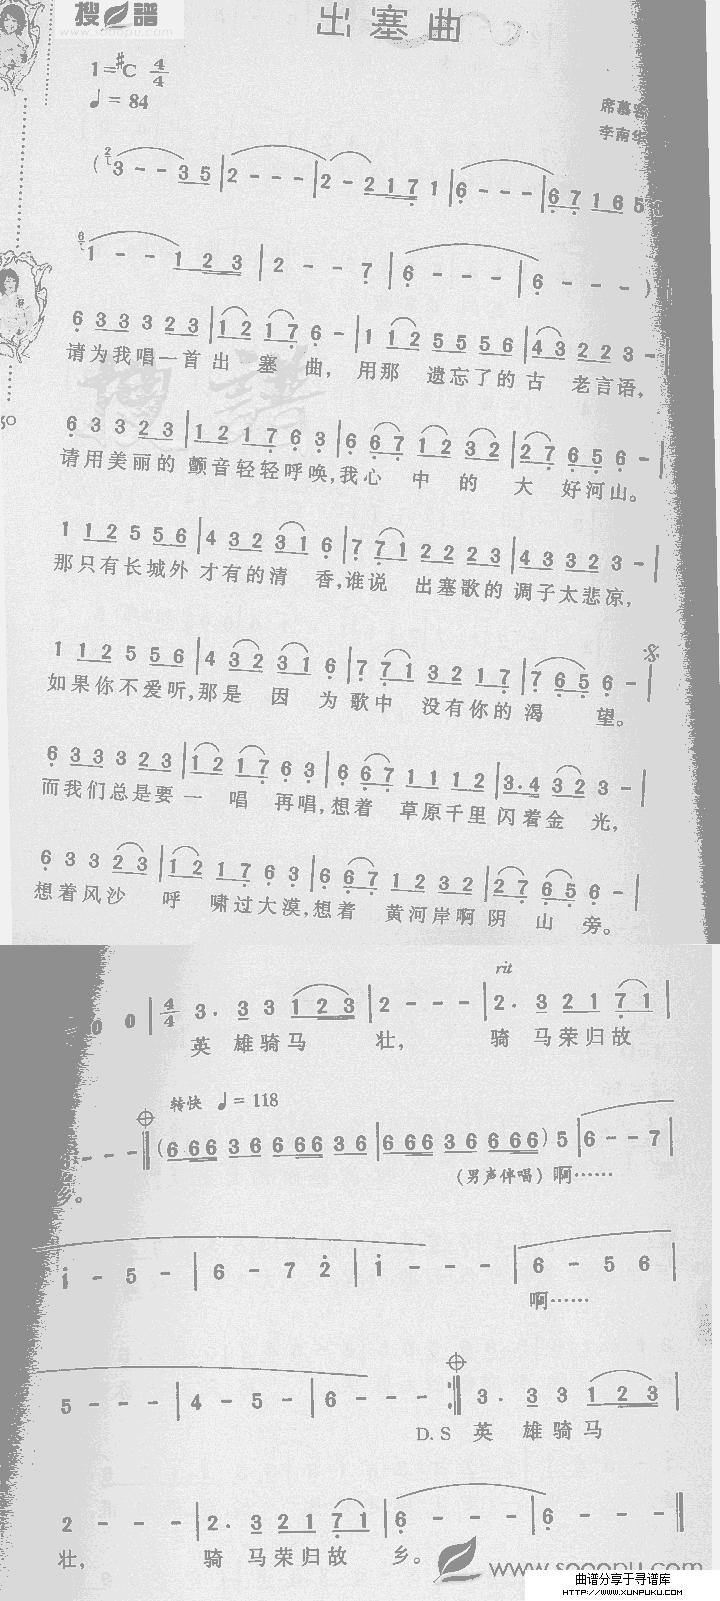 搜谱
www.sooopu.com
出塞曲
1=#C 4/4
♩=84
席慕容
李南华
(3 - - 3 5 | 2 - - - | 2 - 2 1 7 1 | 6 - - - | 6 7 1 6 5
1 - - 1 2 3 | 2 - - 7 | 6 - - - | 6 - - - )
6 3 3 3 2 3 | 1 2 1 7 6 - | 1 1 2 5 5 5 6 | 4 3 2 2 3 -
请为我唱一首出 塞 曲, 用那 遗忘了的古 老言语,
6 3 3 2 3 | 1 2 1 7 6 3 | 6 6 7 1 2 3 2 | 2 7 6 5 6 - |
请用美丽的 颤音轻轻呼唤,我心 中 的 大 好河山。
1 1 2 5 5 6 | 4 3 2 3 1 6 | 7 7 1 2 2 2 3 | 4 3 3 2 3 - |
那只有长城外 才有的清 香,谁说 出塞歌的 调子太悲凉,
1 1 2 5 5 6 | 4 3 2 3 1 6 | 7 7 1 3 2 1 7 | 7 6 5 6 - |
如果你不爱听,那是 因 为歌中 没有你的渴 望。
6 3 3 3 2 3 | 1 2 1 7 6 3 | 6 6 7 1 1 1 2 | 3. 4 3 2 3 - |
而我们总是要一 唱 再唱,想着 草原千里闪着金 光,
6 3 3 2 3 | 1 2 1 7 6 3 | 6 6 7 1 2 3 2 | 2 7 6 5 6 - |
想着风沙 呼 啸过大漠,想着 黄河岸啊阴 山 旁。
rit
0 0 | 4/4 3. 3 3 1 2 3 | 2 - - - | 2. 3 2 1 7 1 |
英 雄骑马 壮, 骑 马荣归故
转快 ♩=118
- - - :‖ (6 6 6 3 6 6 6 6 3 6 | 6 6 6 3 6 6 6 6) 5 | 6 - - 7 |
乡。 (男声伴唱) 啊……
1 - 5 - | 6 - 7 2 | 1 - - - | 6 - 5 6 |
啊……
5 - - - | 4 - 5 - | 6 - - - :‖ 3. 3 3 1 2 3 |
D.S 英 雄骑马
2 - - - | 2. 3 2 1 7 1 | 6 - - - | 6 - - - ‖
壮, 骑 马荣归故 乡。
www.sooopu.com
曲谱分享于寻谱库
HTTP://WWW.XUNPUKU.COM